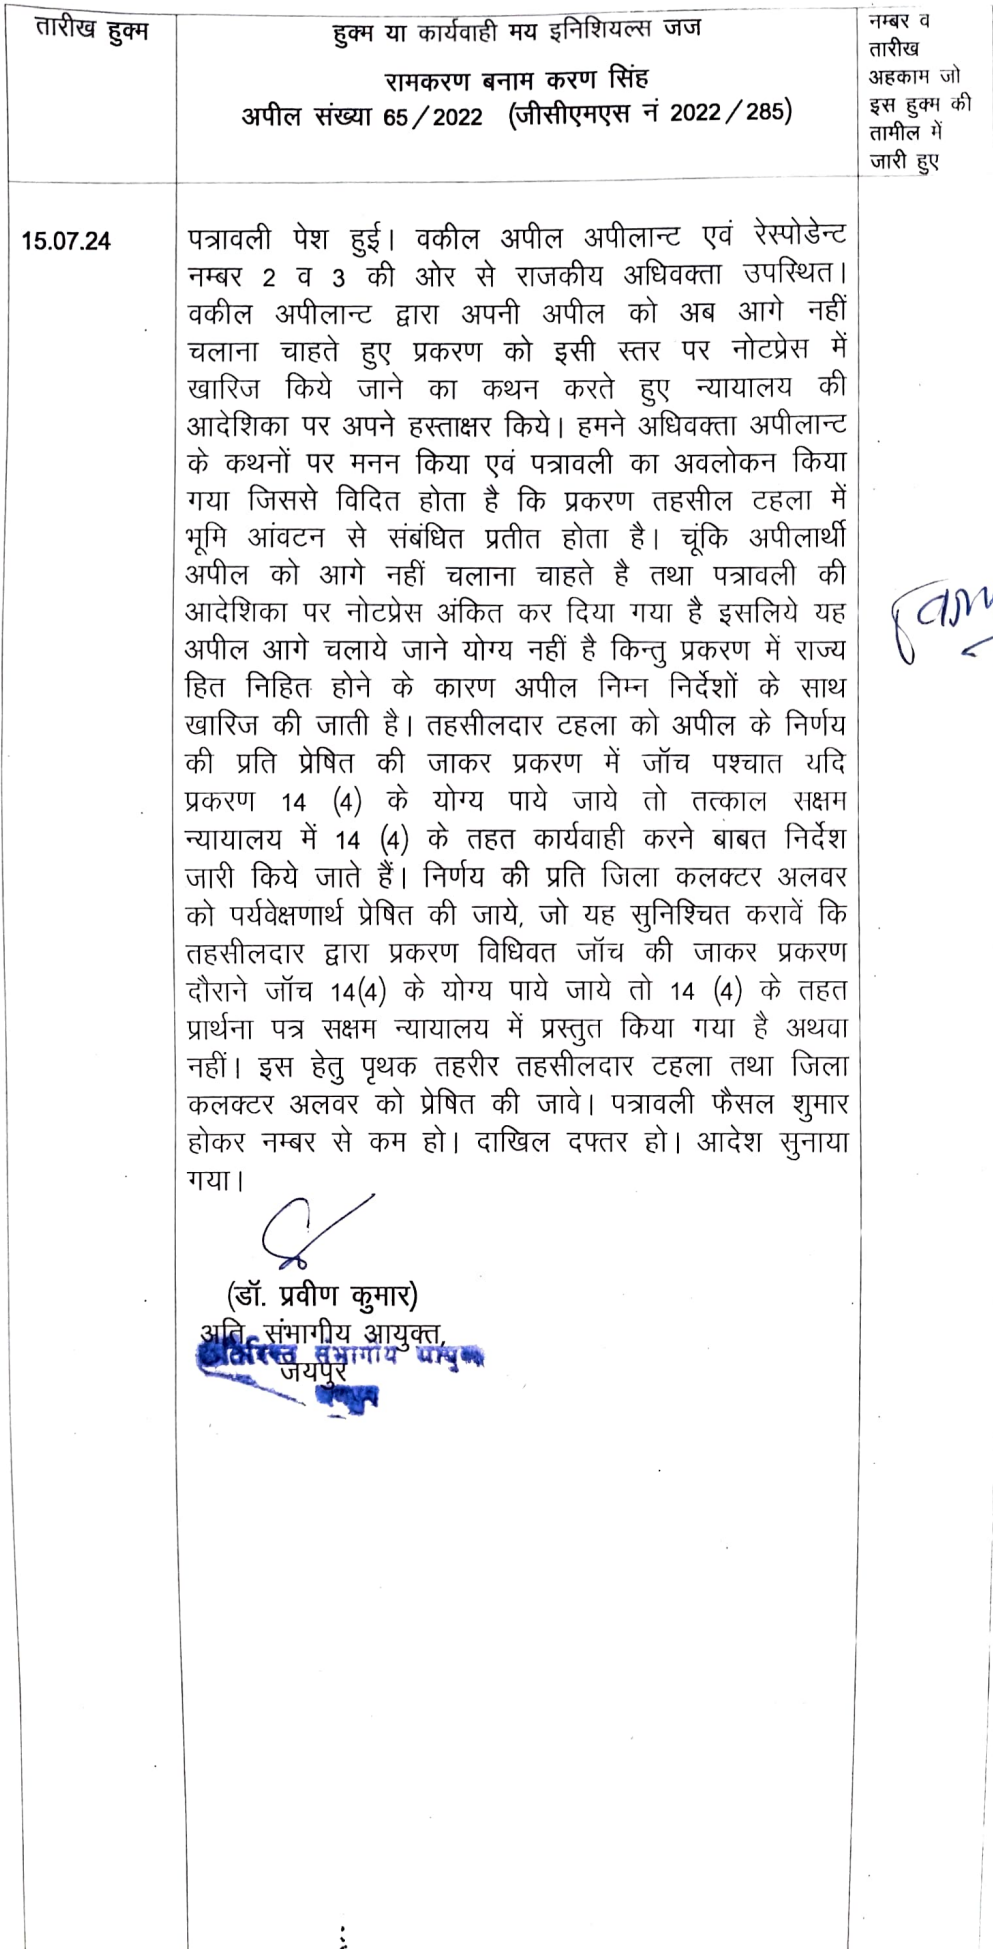 तारीख हुक्म
हुक्म या कार्यवाही मय इनिशियल्स जज
रामकरण बनाम करण सिंह
अपील संख्या 65/2022 (जीसीएमएस नं 2022/285)
नम्बर व
तारीख
अहकाम जो
इस हुक्म की
तामील में
जारी हुए
15.07.24
पत्रावली पेश हुई। वकील अपील अपीलान्ट एवं रेस्पोडेन्ट
नम्बर 2 व 3 की ओर से राजकीय अधिवक्ता उपस्थित।
वकील अपीलान्ट द्वारा अपनी अपील को अब आगे नहीं
चलाना चाहते हुए प्रकरण को इसी स्तर पर नोटप्रेस में
खारिज किये जाने का कथन करते हुए न्यायालय की
आदेशिका पर अपने हस्ताक्षर किये। हमने अधिवक्ता अपीलान्ट
के कथनों पर मनन किया एवं पत्रावली का अवलोकन किया
गया जिससे विदित होता है कि प्रकरण तहसील टहला में
भूमि आंवटन से संबंधित प्रतीत होता है। चूंकि अपीलार्थी
अपील को आगे नहीं चलाना चाहते है तथा पत्रावली की
आदेशिका पर नोटप्रेस अंकित कर दिया गया है इसलिये यह
अपील आगे चलाये जाने योग्य नहीं है किन्तु प्रकरण में राज्य
हित निहित होने के कारण अपील निम्न निर्देशों के साथ
खारिज की जाती है। तहसीलदार टहला को अपील के निर्णय
की प्रति प्रेषित की जाकर प्रकरण में जॉच पश्चात यदि
प्रकरण 14 (4) के योग्य पाये जाये तो तत्काल सक्षम
न्यायालय में 14 (4) के तहत कार्यवाही करने बाबत निर्देश
जारी किये जाते हैं। निर्णय की प्रति जिला कलक्टर अलवर
को पर्यवेक्षणार्थ प्रेषित की जाये, जो यह सुनिश्चित करावें कि
तहसीलदार द्वारा प्रकरण विधिवत जॉच की जाकर प्रकरण
दौराने जॉच 14(4) के योग्य पाये जाये तो 14 (4) के तहत
प्रार्थना पत्र सक्षम न्यायालय में प्रस्तुत किया गया है अथवा
नहीं। इस हेतु पृथक तहरीर तहसीलदार टहला तथा जिला
कलक्टर अलवर को प्रेषित की जावे। पत्रावली फैसल शुमार
होकर नम्बर से कम हो। दाखिल दफ्तर हो। आदेश सुनाया
गया।
(डॉ. प्रवीण कुमार)
अति. संभागीय आयुक्त,
अतिरिक्त संभागीय आयुक्त
जयपुर